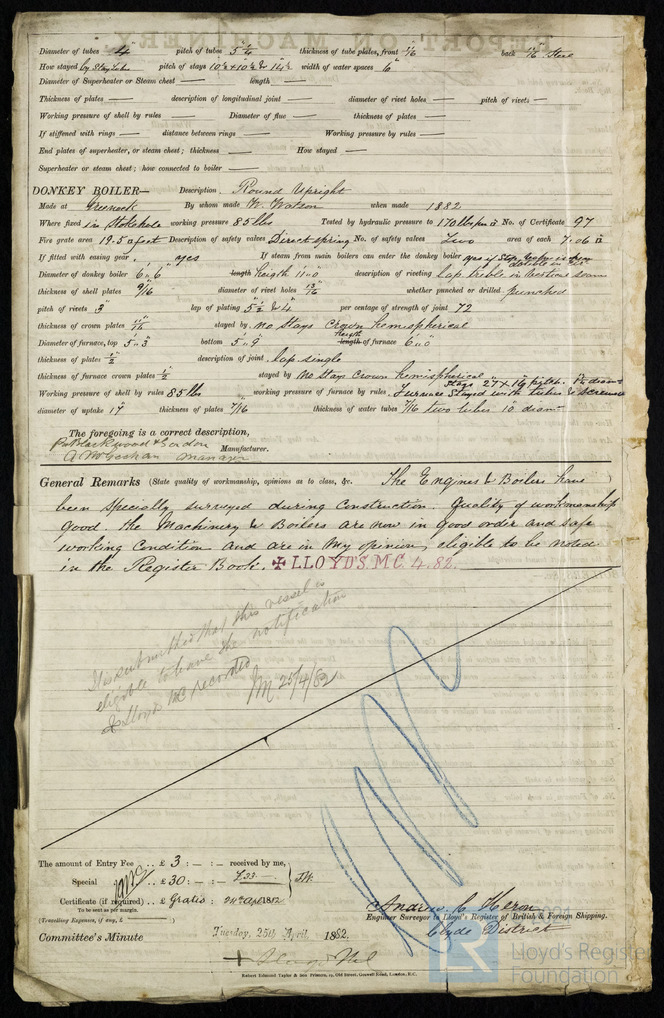 Diameter of tubes 4" pitch of tubes 5 1/4 thickness of tube plates, front back Steel
How stayed by Stay Tubes pitch of stays width of water spaces 6"
Diameter of Superheater or Steam chest — length —
Thickness of plates — description of longitudinal joint — diameter of rivet holes — pitch of rivets —
Working pressure of shell by rules — Diameter of flue — thickness of plates —
If stiffened with rings — distance between rings — Working pressure by rules —
End plates of superheater, or steam chest; thickness — How stayed —
Superheater or steam chest; how connected to boiler —
DONKEY BOILER— Description Round Upright
Made at Greenock By whom made W. Watson when made 1882
Where fixed in Stokehole working pressure 85 lbs Tested by hydraulic pressure to 170 lbs No. of Certificate 97
Fire grate area 19.5 feet Description of safety valves Direct spring No. of safety valves Two area of each 7.06
If fitted with easing gear yes If steam from main boilers can enter the donkey boiler yes if Stop
Diameter of donkey boiler 6'.6" length length 11.0 description of riveting lap treble in vertical seam
thickness of shell plates 9/16 diameter of rivet holes 13/16 whether punched or drilled punched
pitch of rivets 3" lap of plating 5 1/2 & 4 per centage of strength of joint 72
thickness of crown plates 11/16 stayed by no Stays Crown hemispherical
Diameter of furnace, top 5'.3 bottom 5'.9 length height of furnace 6.0
thickness of plates 1/2 description of joint lap single
thickness of furnace crown plates 1/2 stayed by no Stays Crown hemispherical
Working pressure of shell by rules 85 lbs working pressure of furnace by rules Furnace Stayed with tubes & screwed
Stays
diameter of uptake 17" thickness of plates 7/16 thickness of water tubes 7/16 two tubes 10 diam
The foregoing is a correct description,
Blackwood & Gordon Manufacturer.
Manager
General Remarks (State quality of workmanship, opinions as to class, &c. The Engines & Boilers have
been specially surveyed during Construction. Quality of workmanship
good. The Machinery & Boilers are now in good order and safe
working Condition and are in my opinion, eligible to be noted
in the Register Book. ✠ LLOYD'S.M.C. 4.82.
It is submitted that this vessel is
eligible to have the notification
✠ Lloyds MC recorded
25/4/82
The amount of Entry Fee .. £ 3 : — : — received by me,
Special .. £ 30 : — : —
Certificate (if required) .. £ Gratis : 1882
To be sent as per margin.
(Travelling Expenses, if any, £ )
Andrew C Heron
Engineer Surveyor to Lloyd's Register of British & Foreign Shipping.
Clyde District
Committee's Minute Tuesday, 25th April 1882.
Robert Edmund Taylor & Son Printers, 19, Old Street, Goswell Road, London, E.C.
LR Lloyd's Register
Foundation